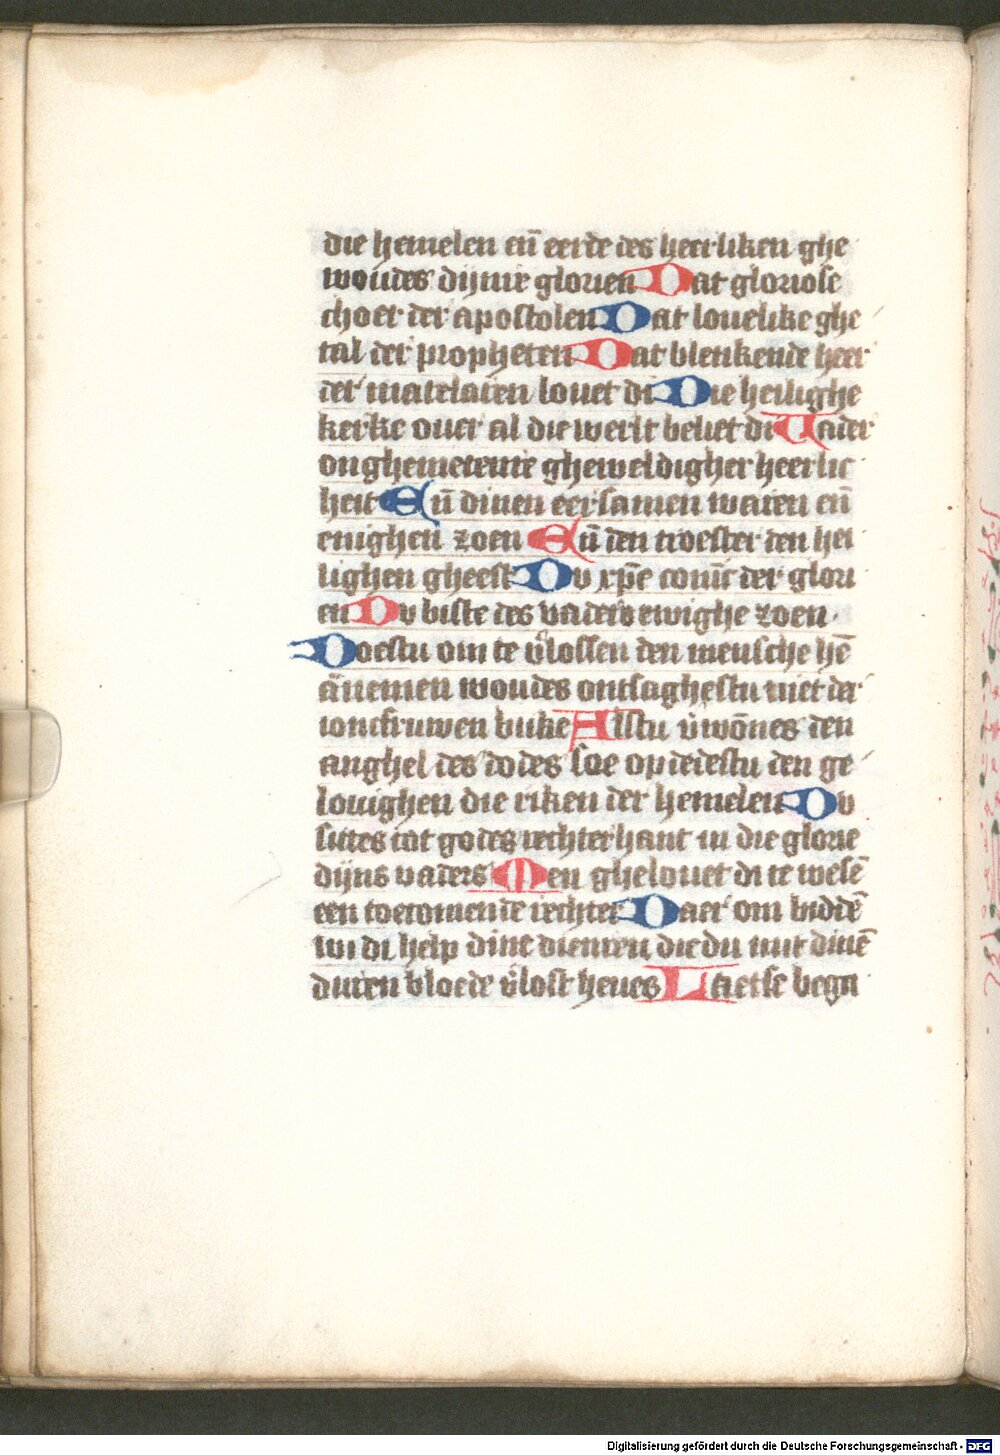 die hemelen eñ eerde des heerliken ghe
woudes dijnre glorien Dat gloriose
choer der apostolen Dat louelike ghe
tal der propheten Dat blenkende heer
der martelaren louet di Die heilighe
kerke ouer al die werlt beliet di Uader
onghemetenre gheweldigher heerlic
heit Eñ dinen eersamen waren eñ
enighen zoen Eñ den troester den hei
lighen gheest Du xp̄e coninc der glori
en Du biste des vaders ewighe zoen
Doestu om te v̄lossen den mensche hē
ānemen woudes ontsaghestu niet der
ioncfruwen buke Alstu v̄wōnes den
anghel des dodes soe opdedestu den ge
louighen die riken der hemelen Du
sittes tot godes rechterhant in die glorie
dijns vaders Men ghelouet di te wesē
een toecomende rechter Daer om biddē
wi di help dine dienren die du mit dinē
duren bloede v̄lost heues Laetse begri
Digitalisierung gefördert durch die Deutsche Forschungsgemeinschaft - DFG